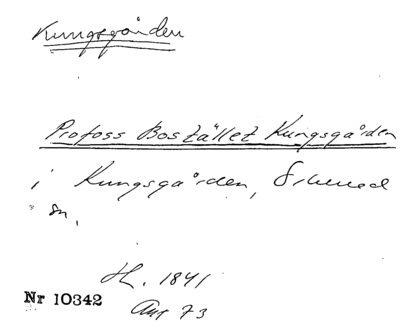 Kungsgården
Profoss Boställlet Kungsgården
i Kungsgården,
sn,
H. 1841
Nr 10342
Aug 73